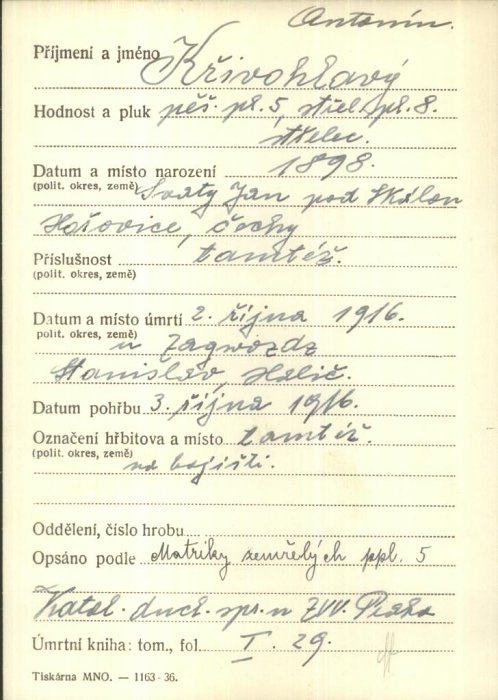 Antonín.
Příjmení a jméno Křivohlavý
Hodnost a pluk pěš. pl. 5, střel. pl. 8.
střelec.
Datum a místo narození 1898.
(polit. okres, země) Svatý Jan pod Skalou
Hořovice, čechy
Příslušnost tamtéž.
(polit. okres, země)
Datum a místo úmrtí 2. října 1916.
polit. okres, země) u Zagwozdz
Stanislav, Halič.
Datum pohřbu 3. října 1916.
Označení hřbitova a místo tamtéž.
(polit. okres, země) na bojišti.
Oddělení, číslo hrobu
Opsáno podle Matriky zemřelých ppl. 5
Katol. duch. spr. u ZVV. Praha
Úmrtní kniha: tom., fol. I. 29.
Tiskárna MNO. — 1163-36.